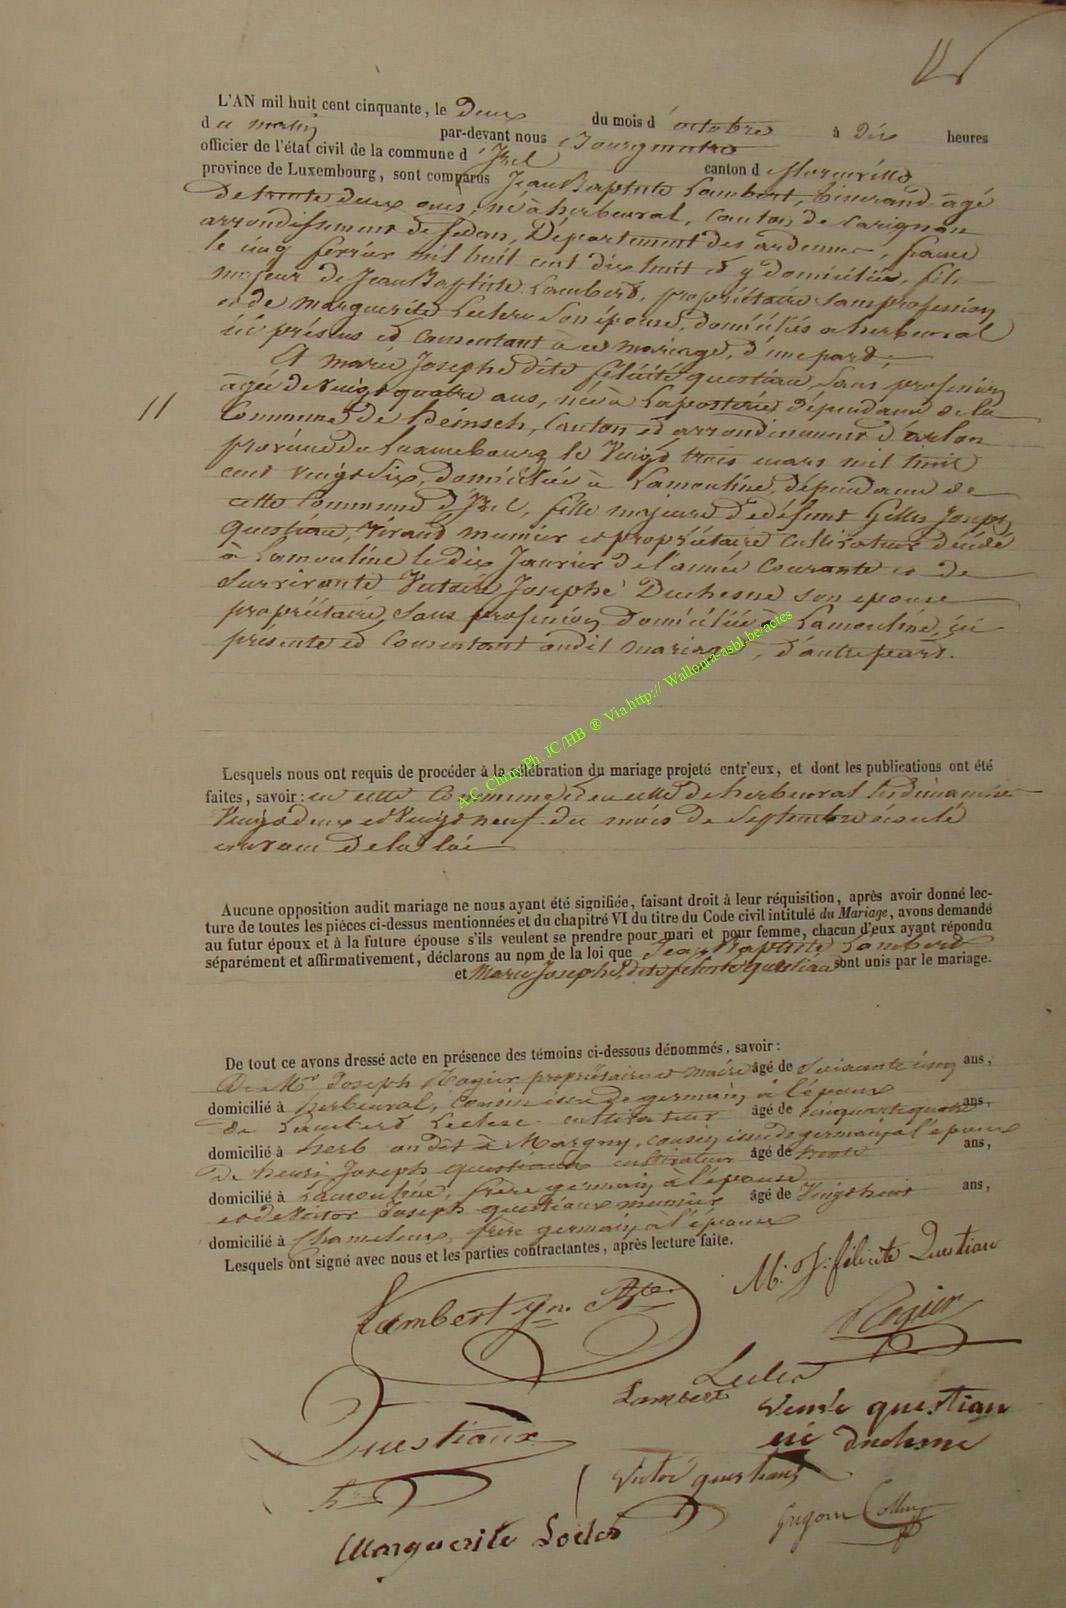 L'AN mil huit cent cinquante, le Deux du mois d'octobre à Dix heures
du matin par-devant nous Bourgmestre
officier de l'état civil de la commune d'Izel canton de florenville
province de Luxembourg, sont comparus Jean Baptiste Lambert, âgé
De trente deux ans, né à herbeuval, Canton de Carignan
arrondissement de Sedan, Département des ardennes, france
le cinq fevrier mil huit cent dix huit et y domicilié, fils
majeur de Jean Baptiste Lambert, propriétaire sans profession
et de Marguerite Leclerc son épouse, domiciliés a herbeuval
ici présens et consentant à ce mariage, d'une part.
Et marie Josephe dite félicité questiau, sans profession
âgée de Vingt quatre ans, née à Laposterie dépendance de la
Commune de heinsch, Canton et arrondissement d'arlon
province de Luxembourg le Vingt trois mars mil huit
cent vingt six, domiciliée à Lamouline, dépendance de
cette Commune d'Izel, fille majeure de défunt Gilles Joseph
questiau, Vivant meunier et propriétaire cultivateur décédé
à Lamouline le dix Janvier de l'année Courante et de
Survivante Josephe Duchesne son epouse
propriétaire, sans profession, Domiciliée à Lamouline, ici
presente et Consentant audit mariage, d'autre part.
11
Lesquels nous ont requis de procéder à la célébration du mariage projeté entr'eux, et dont les publications ont été
faites, savoir : en cette Commune et en celle de herbeuval les dimanches
Vingt deux et Vingt neuf du mois de Septembre écoulé
au vœu de la loi
Aucune opposition audit mariage ne nous ayant été signifiée, faisant droit à leur réquisition, après avoir donné lec-
ture de toutes les pièces ci-dessus mentionnées et du chapitre VI du titre du Code civil intitulé du Mariage, avons demandé
au futur époux et à la future épouse s'ils veulent se prendre pour mari et pour femme, chacun d'eux ayant répondu
séparément et affirmativement, déclarons au nom de la loi que Jean Baptiste Lambert
et Marie Josephe, dite félicité questiau sont unis par le mariage.
De tout ce avons dressé acte en présence des témoins ci-dessous dénommés, savoir :
De Mr Joseph Rogier propriétaire et maire âgé de Soixante cinq ans,
domicilié à herbeuval, cousin issu de germain à l'époux
de Lambert Leclerc cultivateur âgé de cinquante quatre ans,
domicilié à herb on dit à Margny, cousin issu de germain à l'epoux
De henri Joseph questiaux cultivateur âgé de trente ans,
domicilié à Lamouline, frère germain à l'épouse
et de Victor Joseph questiaux meunier âgé de Vingt huit ans,
domicilié à Chameleux, frère germain à l'épouse
Lesquels ont signé avec nous et les parties contractantes, après lecture faite.
M. J. félicité Questiau
Lambert Jn. Bte.
Rogier
Lambert Leclerc
Questiaux
Veuve questiau
née duchesne
Victor questiaux
Marguerite Leclerc
A.C. Chiny Ph. JC/HB ® Via http:// Wallonia-asbl.be/actes